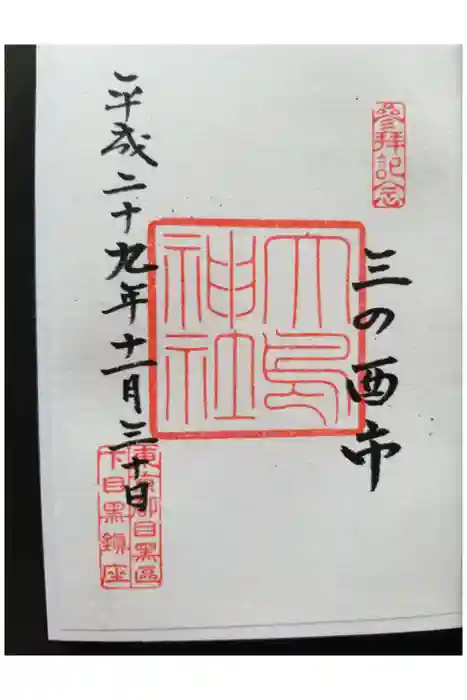 參拝記念
三の酉市
大鳥神社
平成二十九年十一月三十日
東京都目黑區
下目黑鎮座